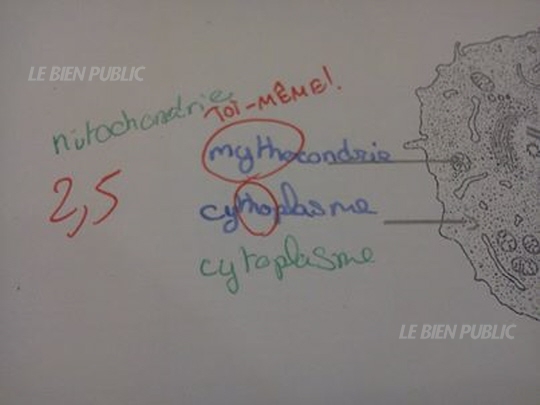 LE BIEN PUBLIC
mitochondrie
TOI-MÊME!
mythocondrie
2,5
cythoplasme
cytoplasme
LE BIEN PUBLIC